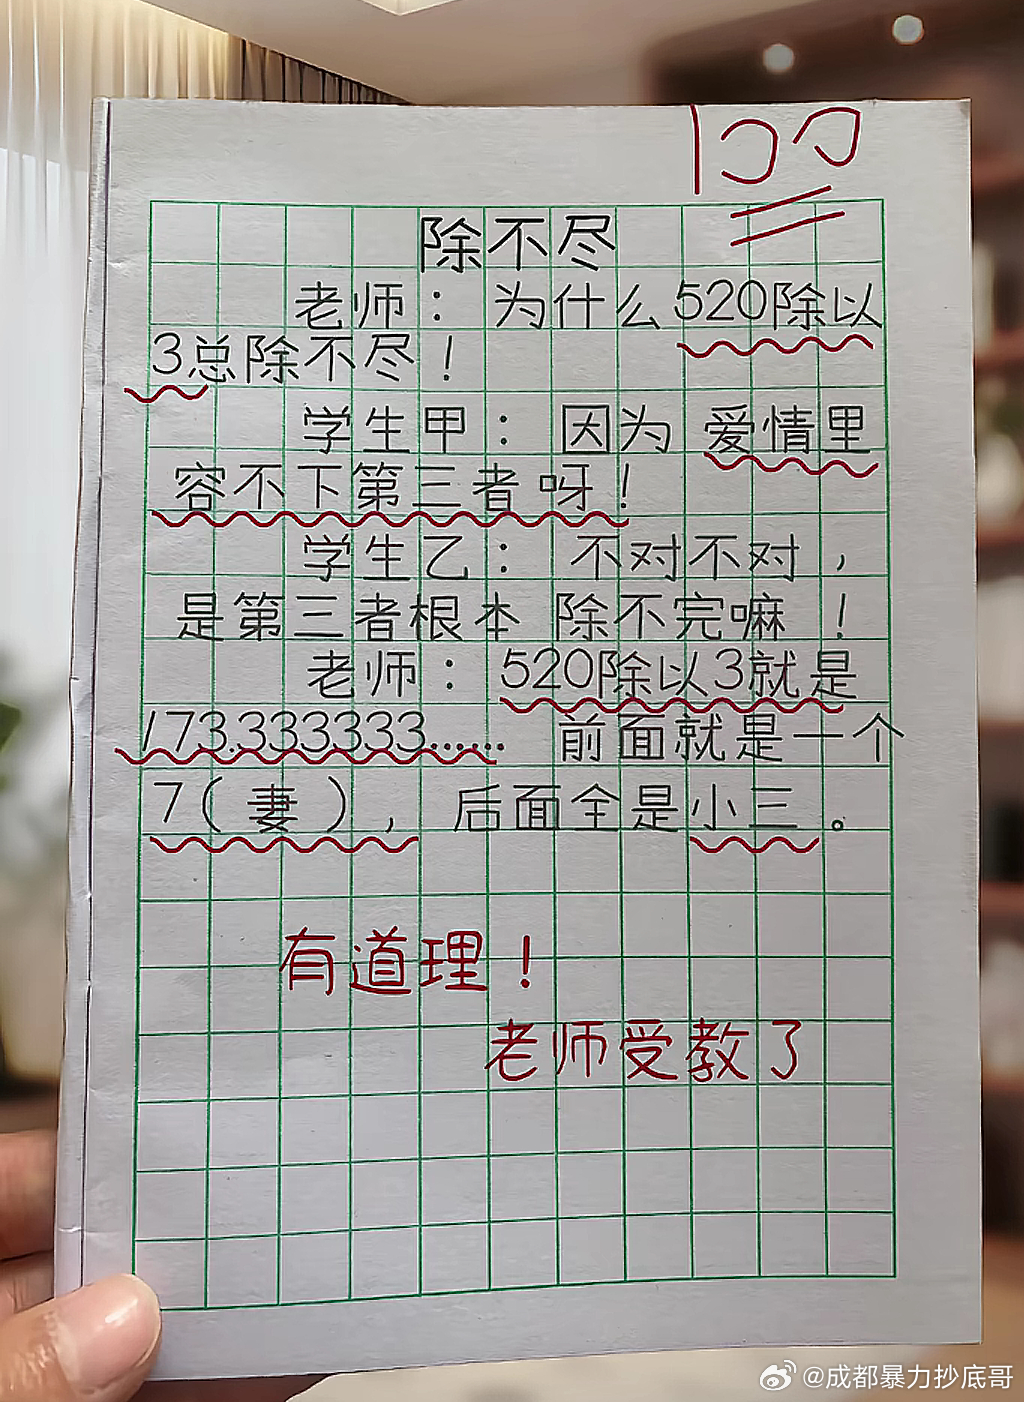 100
除不尽
老师：为什么520除以
3总除不尽！
学生甲：因为 爱情里
容不下第三者呀！
学生乙：不对不对，
是第三者根本 除不完嘛！
老师：520除以3就是
173.333333…… 前面就是一个
7（妻），后面全是小三。
有道理！
老师受教了
@成都暴力抄底哥